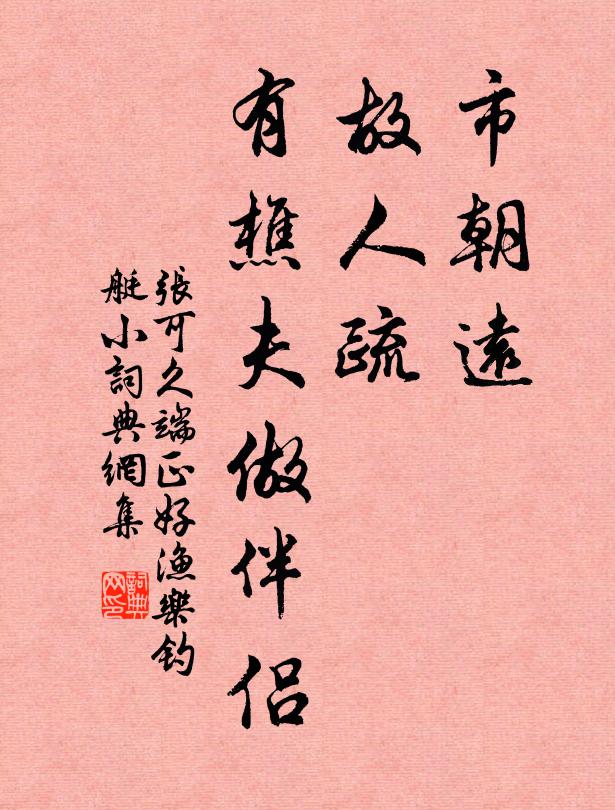 市朝遠
故人疏
有樵夫做伴侶
張可久端正好漁樂釣
艇小詞典網集
詞典
网印